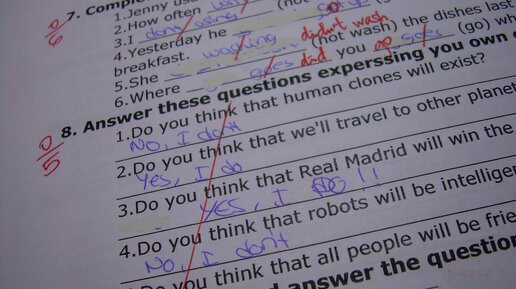 0/6
7. Comple
1.Jenny use
2.How often
3.I don't using
4.Yesterday he
breakfast.
5.She washing (not wash) the dishes last didn't wash
6.Where goes did you go goes (go) wh
0/5
8. Answer these questions experssing you own o
1.Do you think that human clones will exist?
NO, I don't
2.Do you think that we'll travel to other planet
Yes, I do
3.Do you think that Real Madrid will win the
Yes, I DO!!
4.Do you think that robots will be intelligen
No, I don't
Do you think that all people will be frie
d answer the question